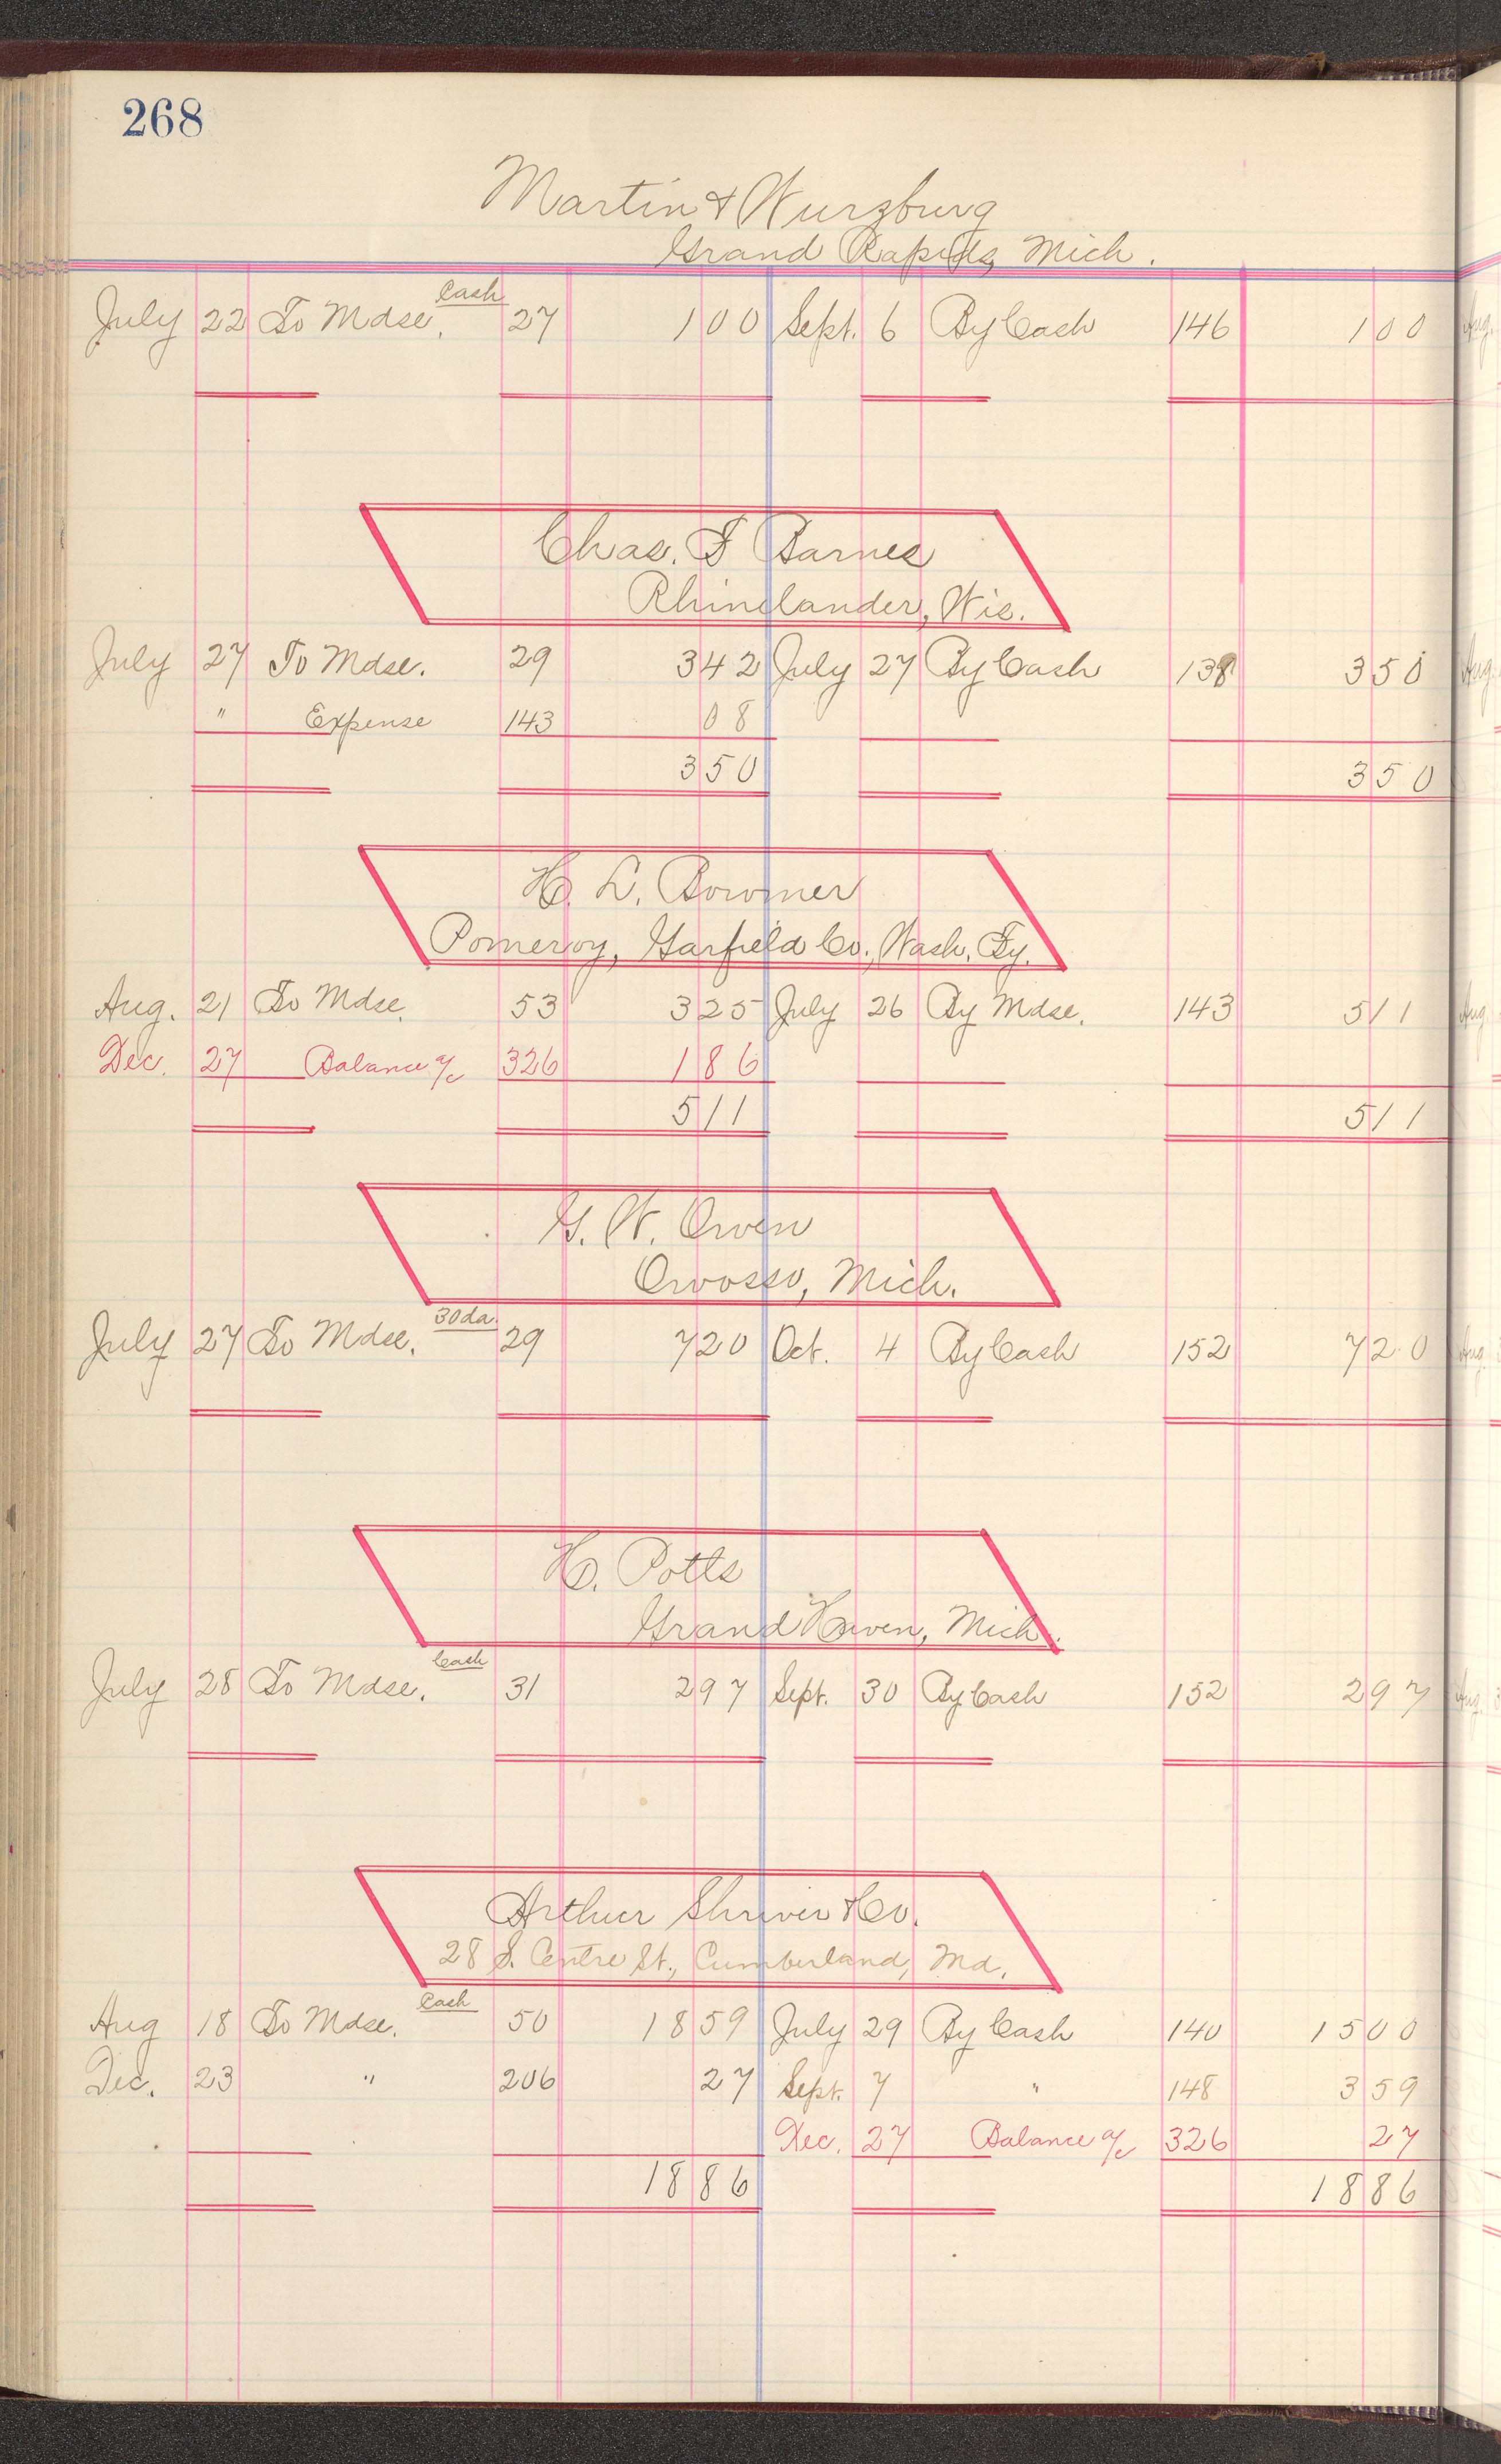 268
Martin & Wurzburg
Grand Rapids, Mich.
July 22 To Mdse. Cash 27 1 00 Sept. 6 By Cash 146 1 00
Chas. F Barnes
Rhinelander, Wis.
July 27 To Mdse. 29 3 42 July 27 By Cash 138 3 50
" Expense 143 08
3 50 3 50
H. L. Bowmer
Pomeroy, Garfield Co., Wash. Ty.
Aug. 21 To Mdse. 53 3 25 July 26 By Mdse. 143 5 11
Dec. 27 Balance a/c 326 1 86
5 11 5 11
G. W. Owen
Owosso, Mich.
July 27 To Mdse. 30 da. 29 7 20 Oct. 4 By Cash 152 7 20
H. Potts
Grand Haven, Mich.
July 28 To Mdse. Cash 31 2 97 Sept. 30 By Cash 152 2 97
Arthur Shriver & Co.
28 S. Centre St., Cumberland, Md.
Aug 18 To Mdse. Cash 50 18 59 July 29 By Cash 140 15 00
Dec. 23 " 206 27 Sept. 7 " 148 3 59
Dec. 27 Balance a/c 326 27
18 86 18 86